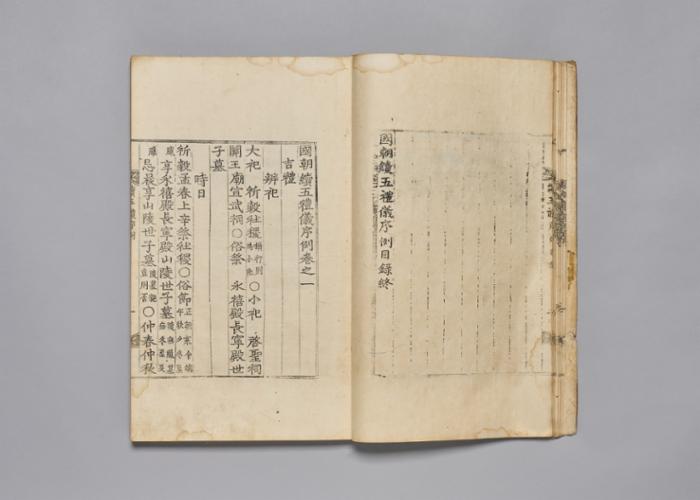 國朝續五禮儀序例目錄終
國朝續五禮儀序例卷之一
吉禮
辨祀
大祀 祈穀社稷 ○小祀 啓聖祠
關王廟宣武祠○俗祭 永禧殿長寧殿世
子墓
時日
祈穀孟春上辛祭社稷○俗節 正朝寒食端午秋夕冬至
享永禧殿長寧殿山陵世子墓
忌晨享山陵世子墓 ○仲春仲秋